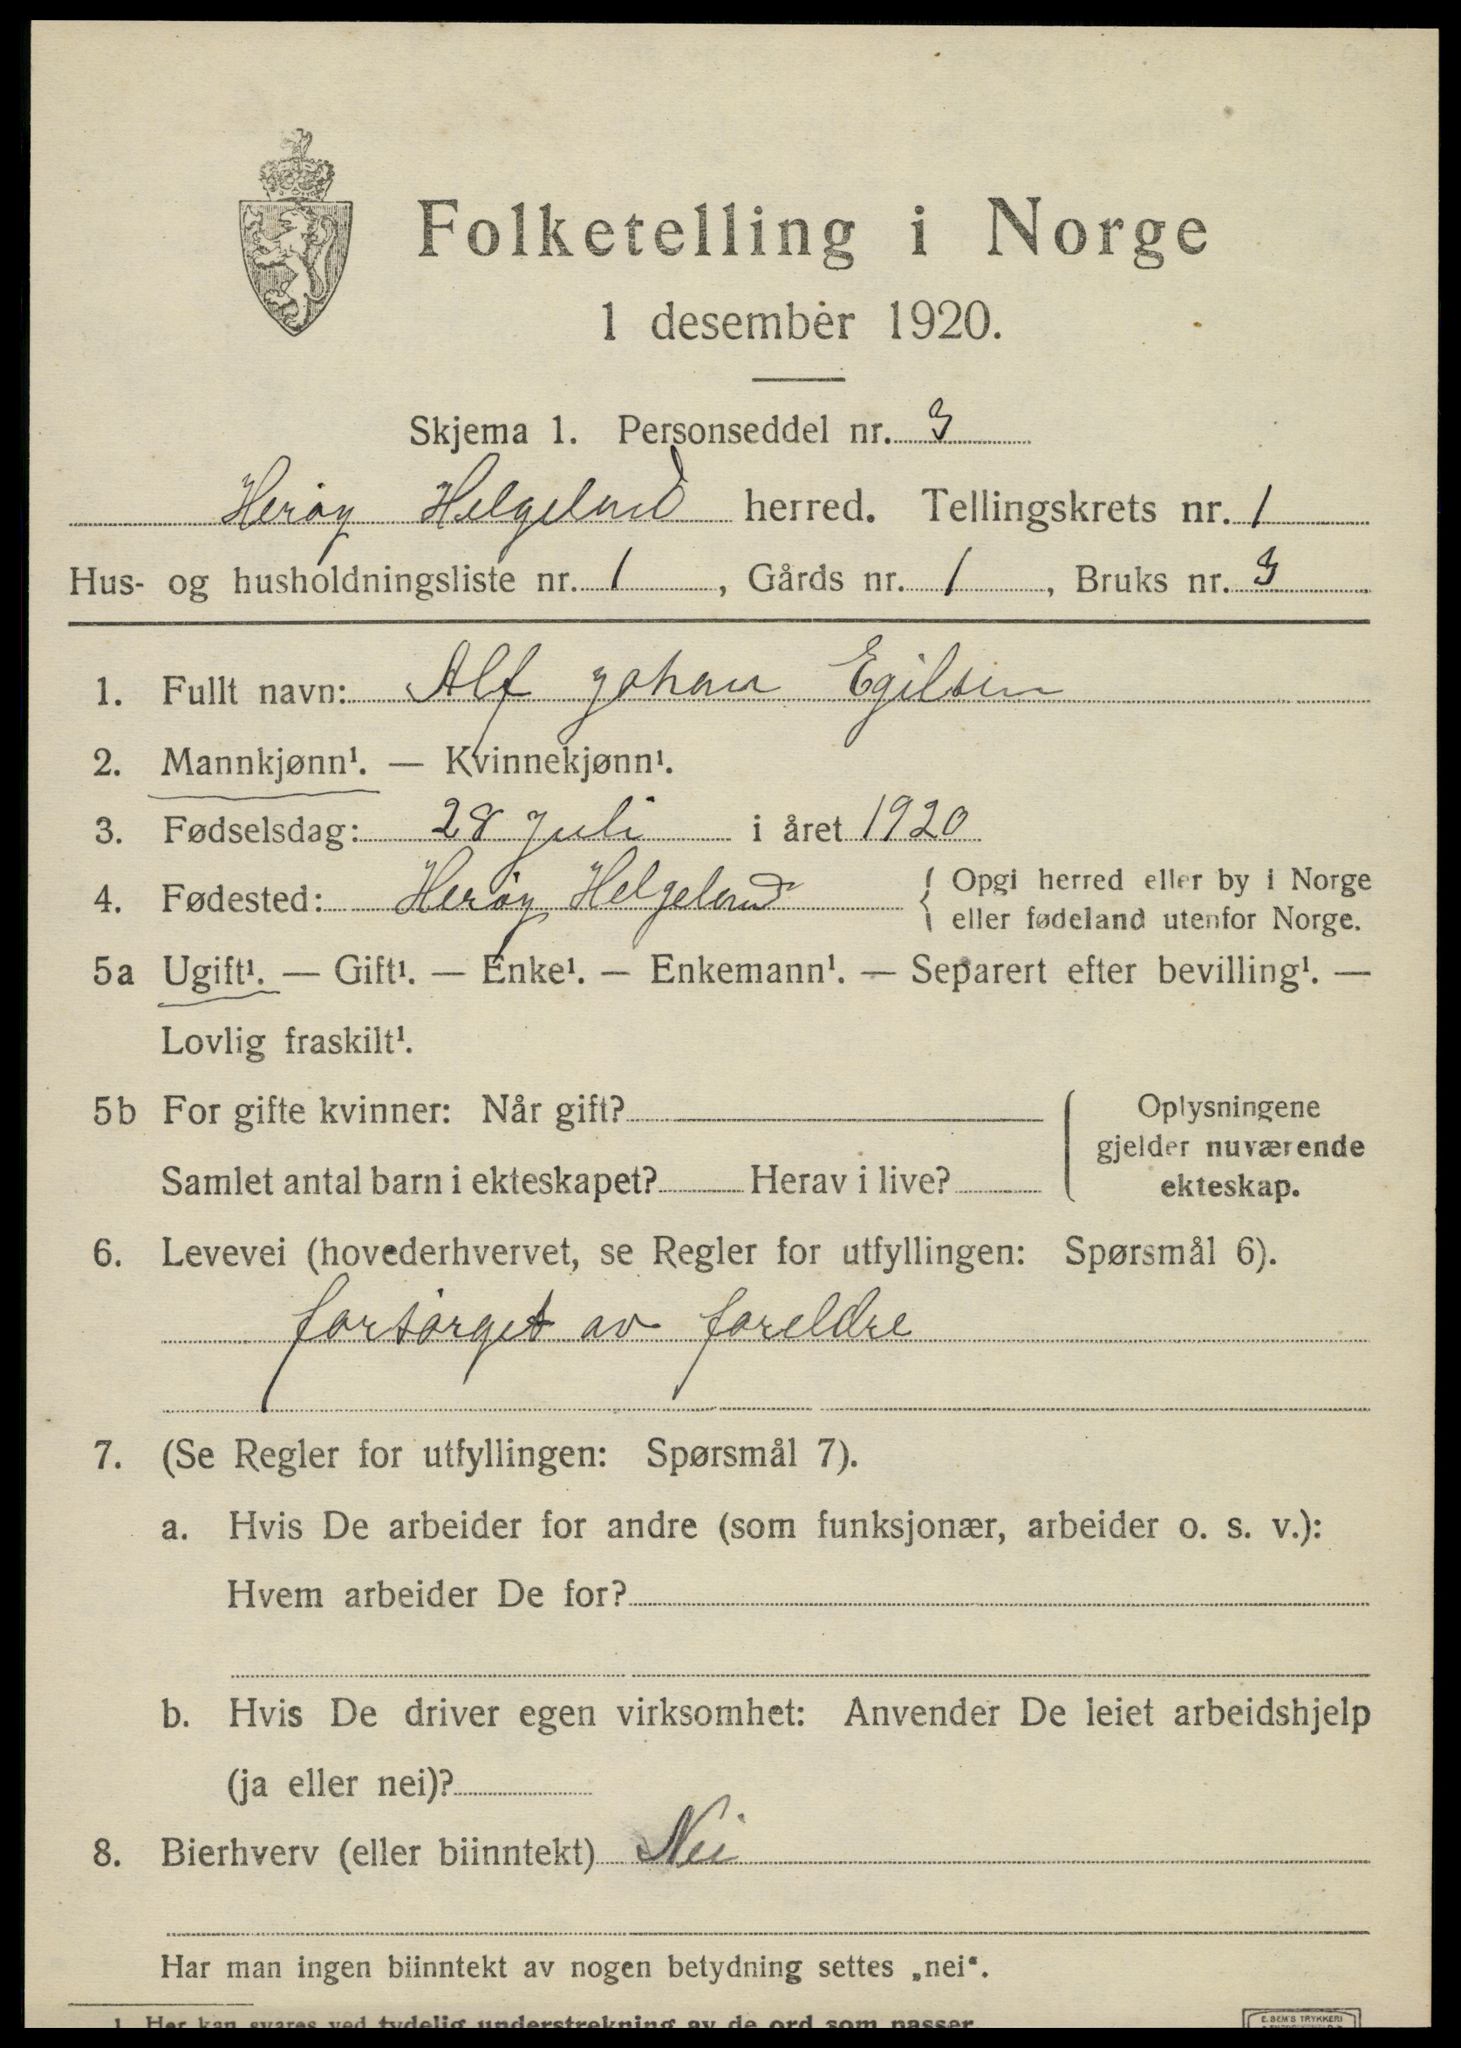 Folketelling i Norge
1 desember 1920.
Skjema 1. Personseddel nr. 3
Herøy Helgeland herred. Tellingskrets nr. 1
Hus- og husholdningsliste nr. 1, Gårds nr. 1, Bruks nr. 3
1. Fullt navn: Alf Johan Egilsen
2. Mannkjønn¹. — Kvinnekjønn¹.
3. Fødselsdag: 28 Juli i året 1920
4. Fødested: Herøy Helgeland { Opgi herred eller by i Norge
eller fødeland utenfor Norge.
5a Ugift¹. — Gift¹. — Enke¹. — Enkemann¹. — Separert efter bevilling¹. —
Lovlig fraskilt¹.
5b For gifte kvinner: Når gift?
Samlet antal barn i ekteskapet? Herav i live?
Oplysningene
gjelder nuværende
ekteskap.
6. Levevei (hovederhvervet, se Regler for utfyllingen: Spørsmål 6).
forsørget av foreldre
7. (Se Regler for utfyllingen: Spørsmål 7).
a. Hvis De arbeider for andre (som funksjonær, arbeider o. s. v.):
Hvem arbeider De for?
b. Hvis De driver egen virksomhet: Anvender De leiet arbeidshjelp
(ja eller nei)?
8. Bierhverv (eller biinntekt) Nei
Har man ingen biinntekt av nogen betydning settes „nei“.
1. Her kan svares ved tydelig understrekning av de ord som passer.
E. SEM'S TRYKKERI